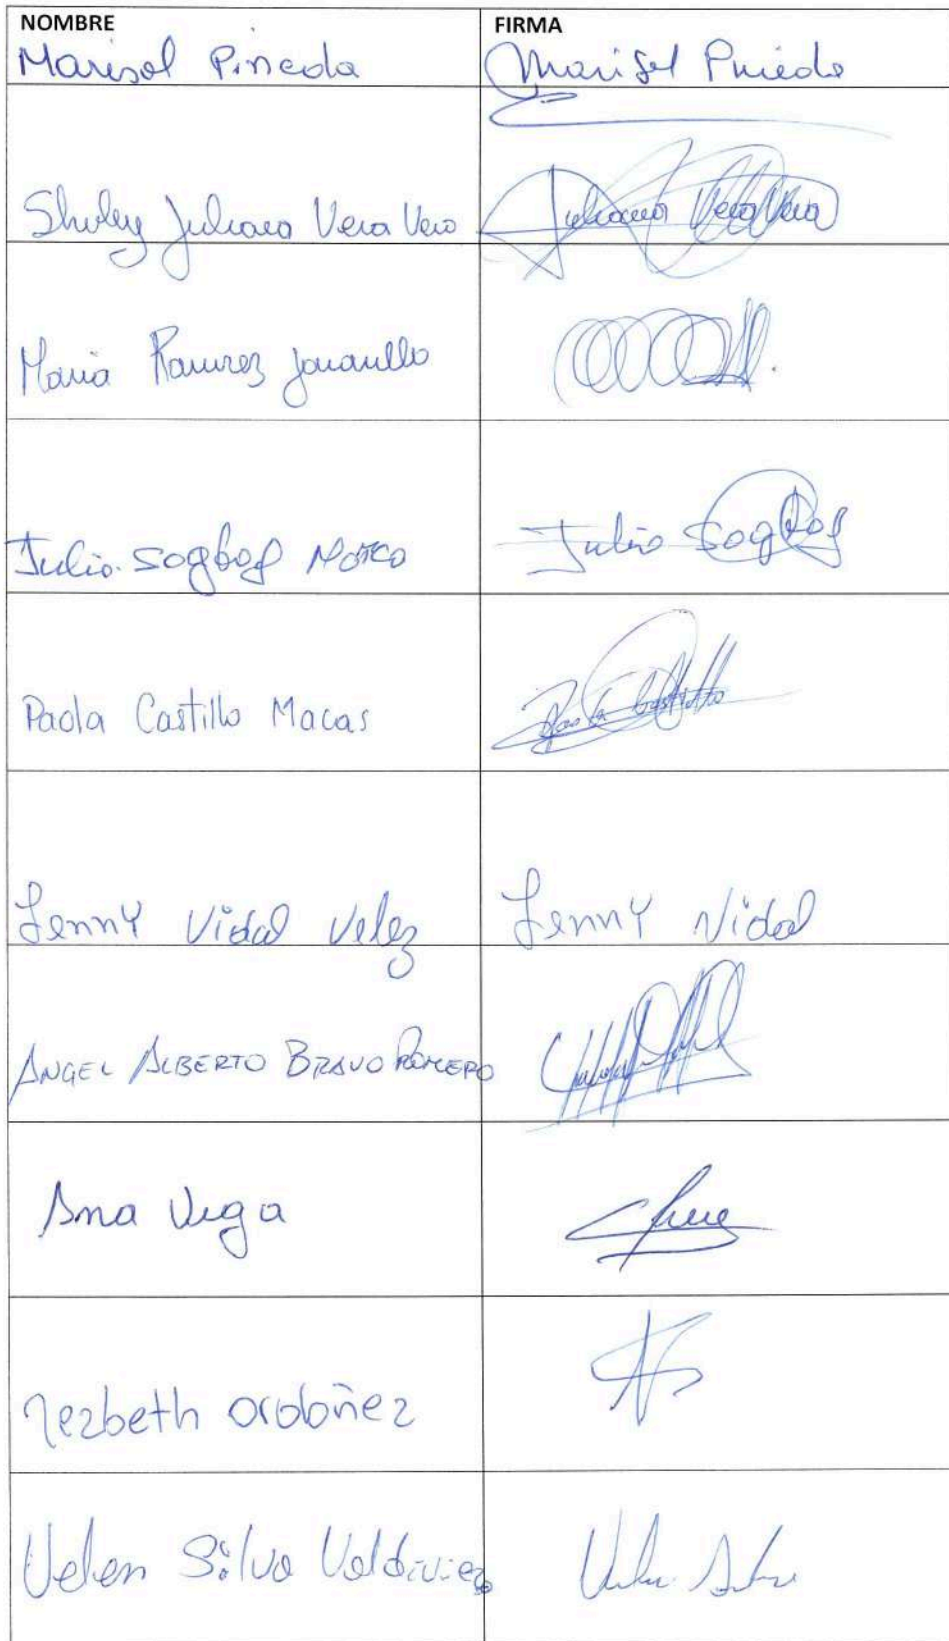 NOMBRE FIRMA
Marisol Pineda Marisol Pineda
Shirley Juliana Vera Vera Juliana Vera Vera
Maria Ramirez Jaramillo
Julio Sogbof Julio Sogbof
Paola Castillo Macas Paola Castillo
Jenny Vidal Velez Jenny Vidal
ANGEL ALBERTO BRAVO ROMERO
Ana Vega
Nezbeth Ordoñez
Velen Silva Valdiviezo